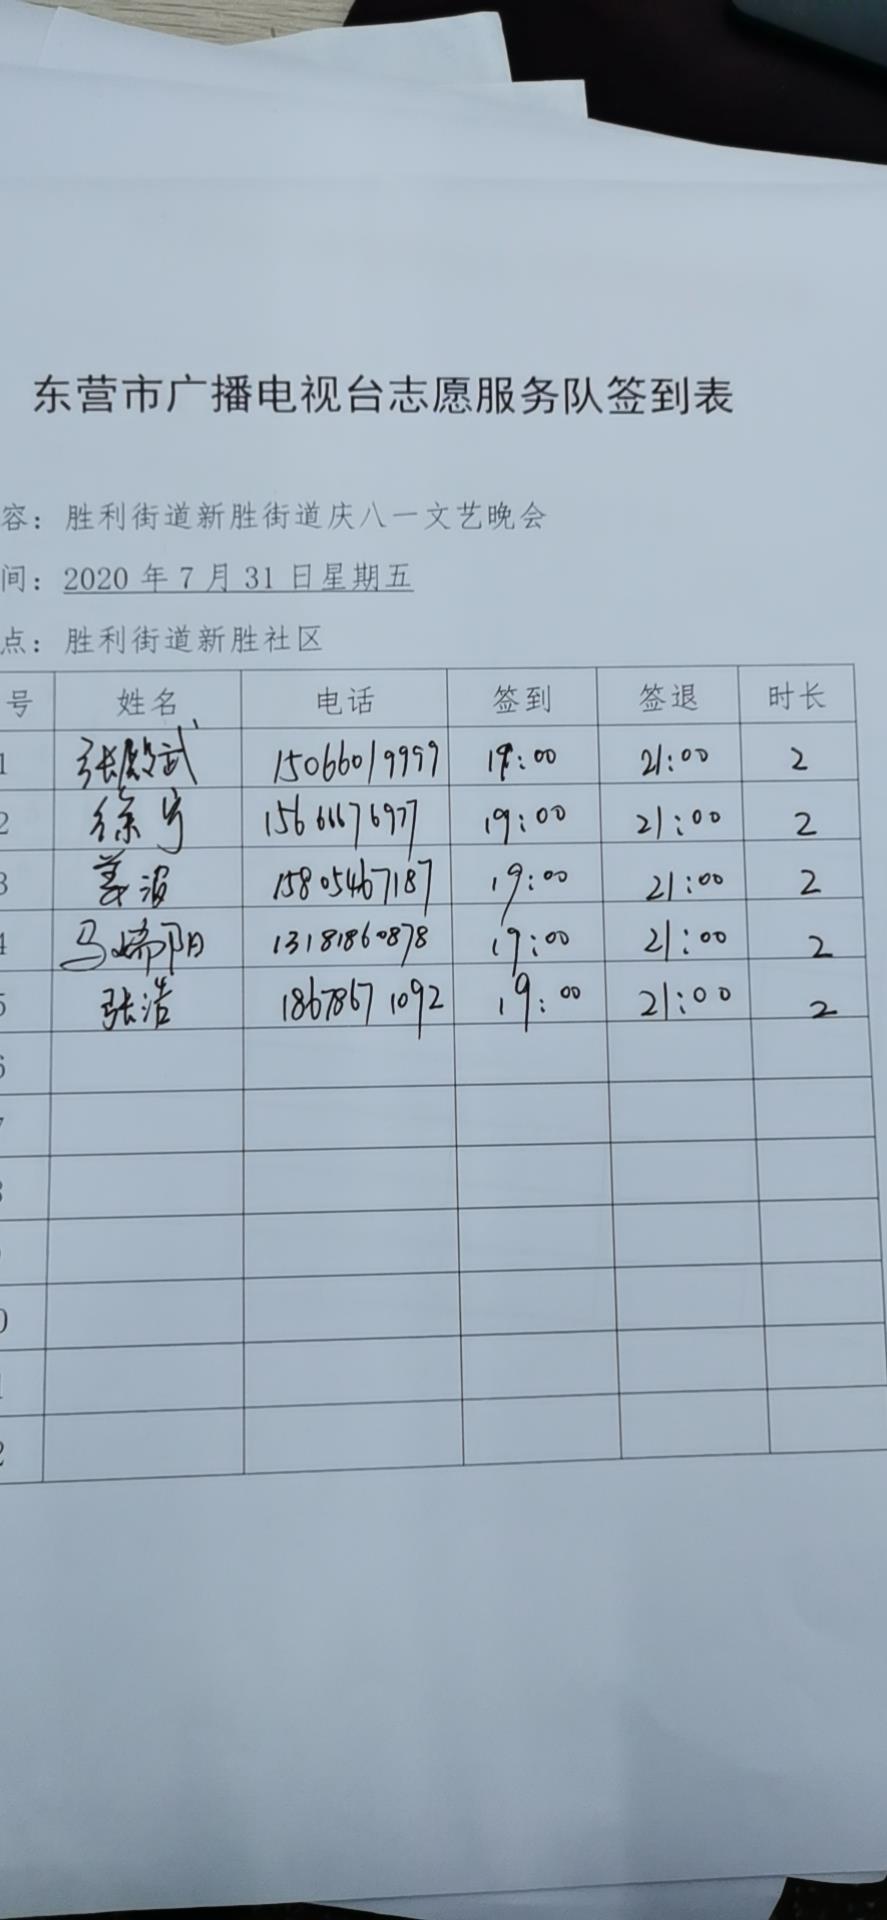 东营市广播电视台志愿服务队签到表
容：胜利街道新胜街道庆八一文艺晚会
间：2020 年 7 月 31 日星期五
点：胜利街道新胜社区
号 姓名 电话 签到 签退 时长
1 张殿武 15066019999 19:00 21:00 2
2 徐宁 15666676977 19:00 21:00 2
3 姜波 15805467187 19:00 21:00 2
4 马端阳 13181860878 19:00 21:00 2
5 张浩 18678671092 19:00 21:00 2
6
7
8
0
1
2